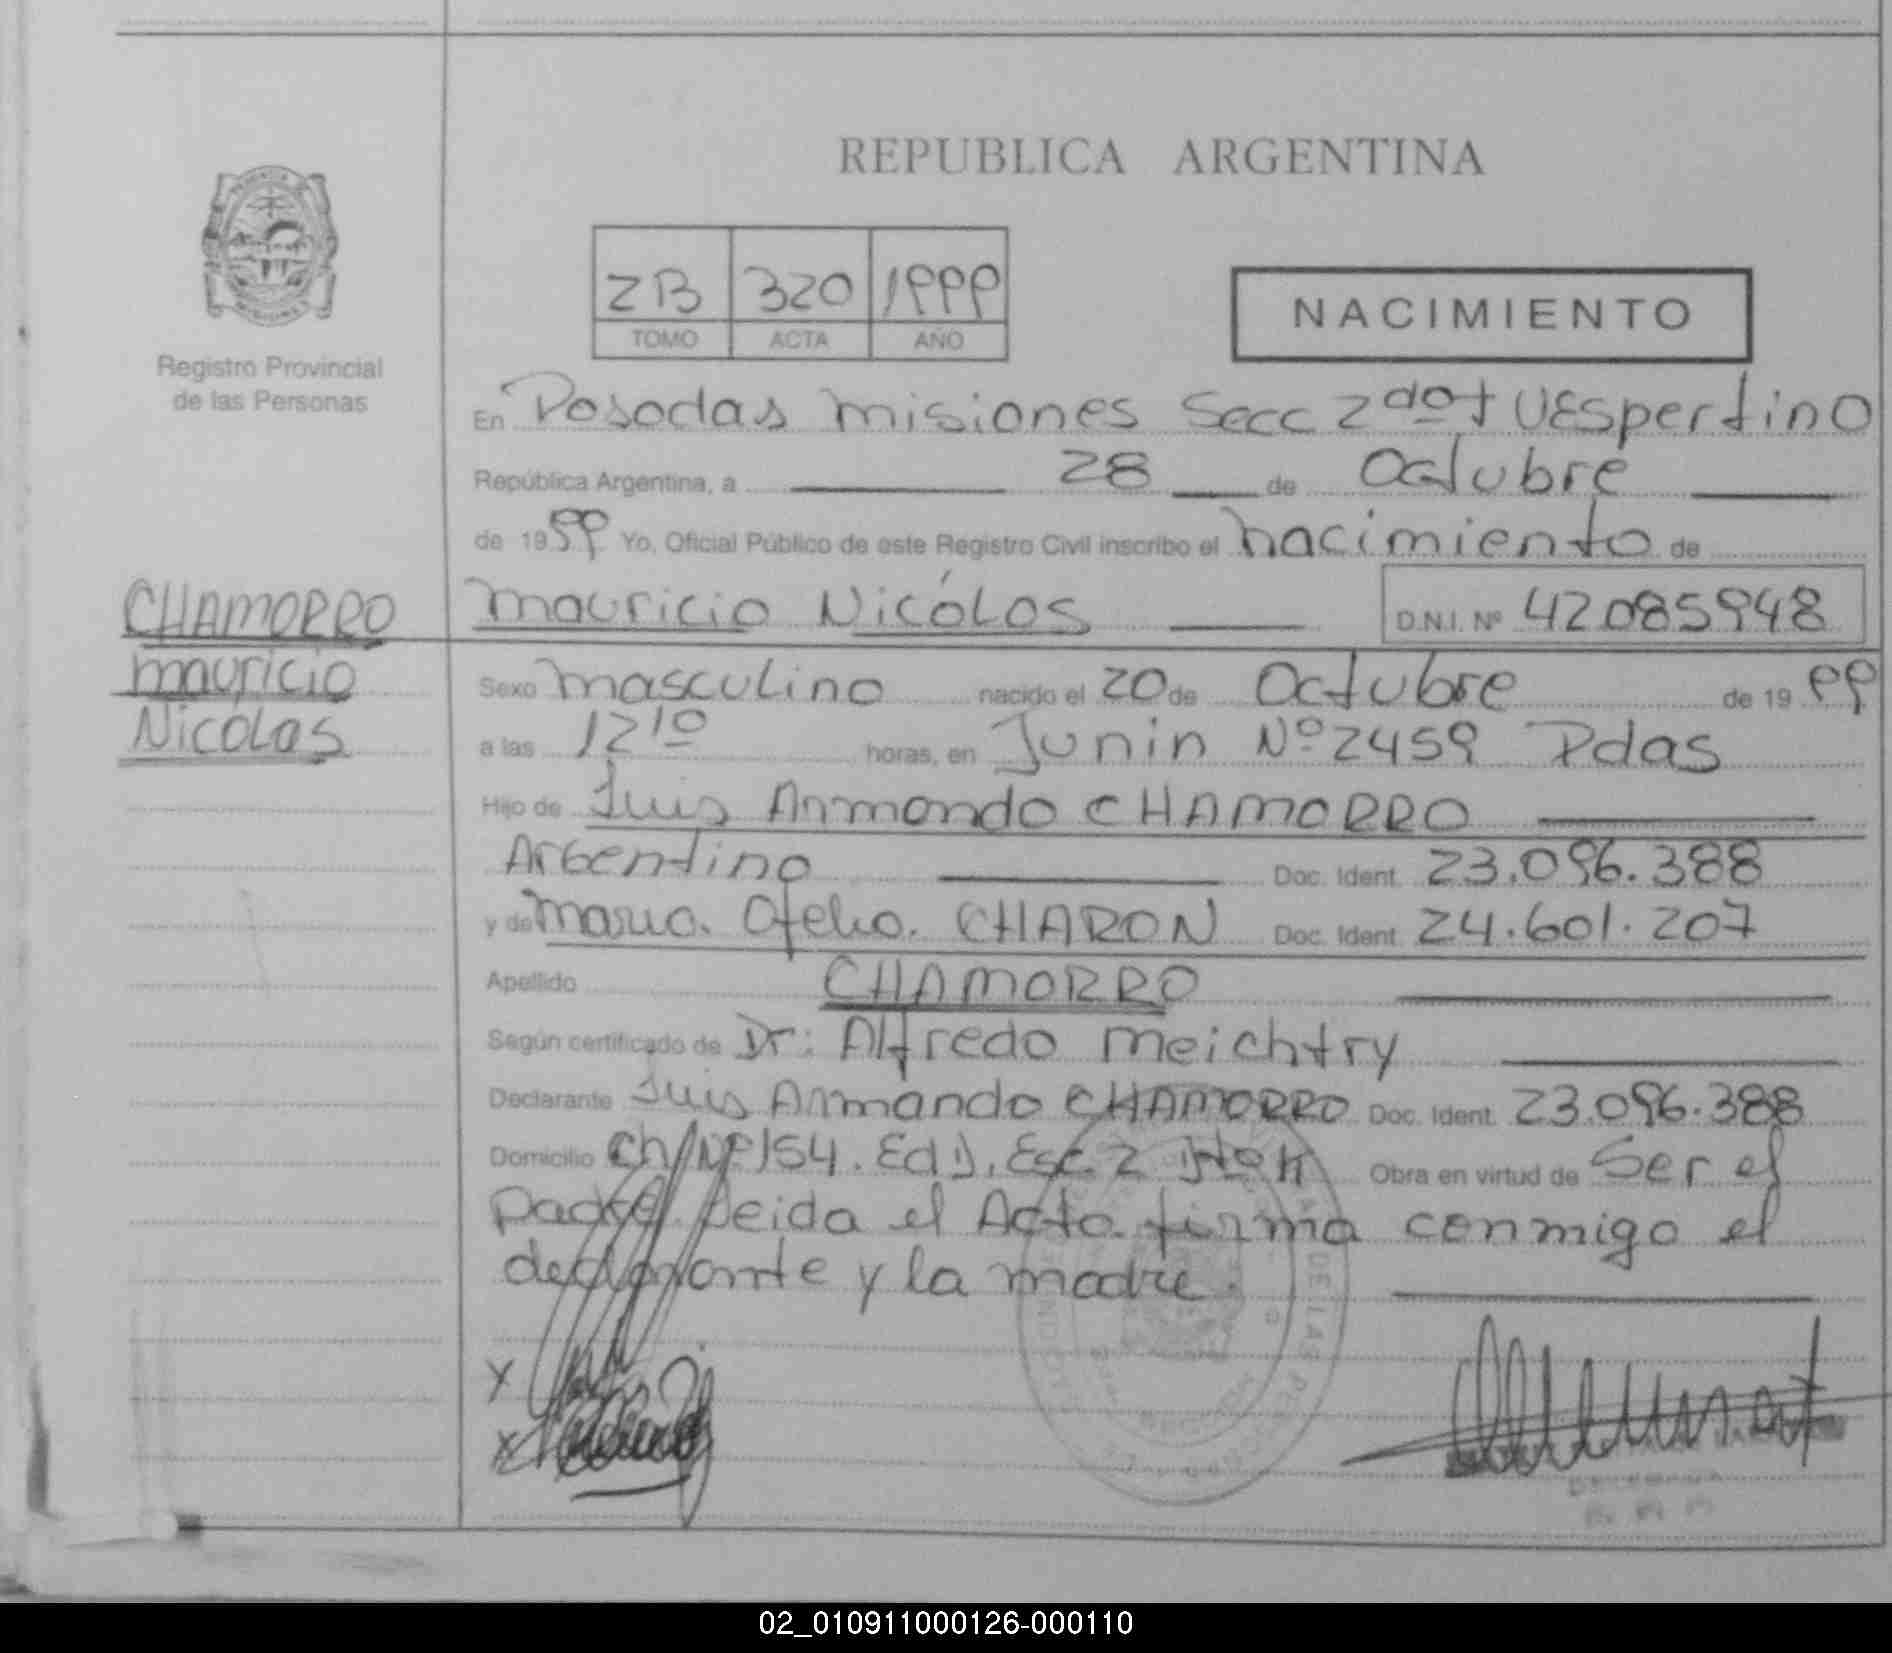 REPUBLICA ARGENTINA
2B 320 1999
TOMO ACTA AÑO
NACIMIENTO
Registro Provincial
de las Personas
En Posadas Misiones Secc 2do t Vespertino
República Argentina, a 28 de Octubre
de 1999 Yo, Oficial Público de este Registro Civil inscribo el nacimiento de
CHAMORRO
Mauricio
Nicolás
Mauricio Nicólas D.N.I. Nº 42085948
Sexo masculino nacido el 20 de Octubre de 1999
a las 12 10 horas, en Junin Nº 2459 Pdas
Hijo de Luis Armando CHAMORRO
Argentino Doc. Ident. 23.096.388
y de Maria Ofelia CHARON Doc. Ident. 24.601.207
Apellido CHAMORRO
Según certificado de Dr: Alfredo Meichtry
Declarante Luis Armando CHAMORRO Doc. Ident. 23.096.388
Domicilio Ch Nº 154. Ed 1, Esc. 2 Obra en virtud de Ser el
padre Leida el Acta firma conmigo el
declarante y la madre.
x
x
02_010911000126-000110